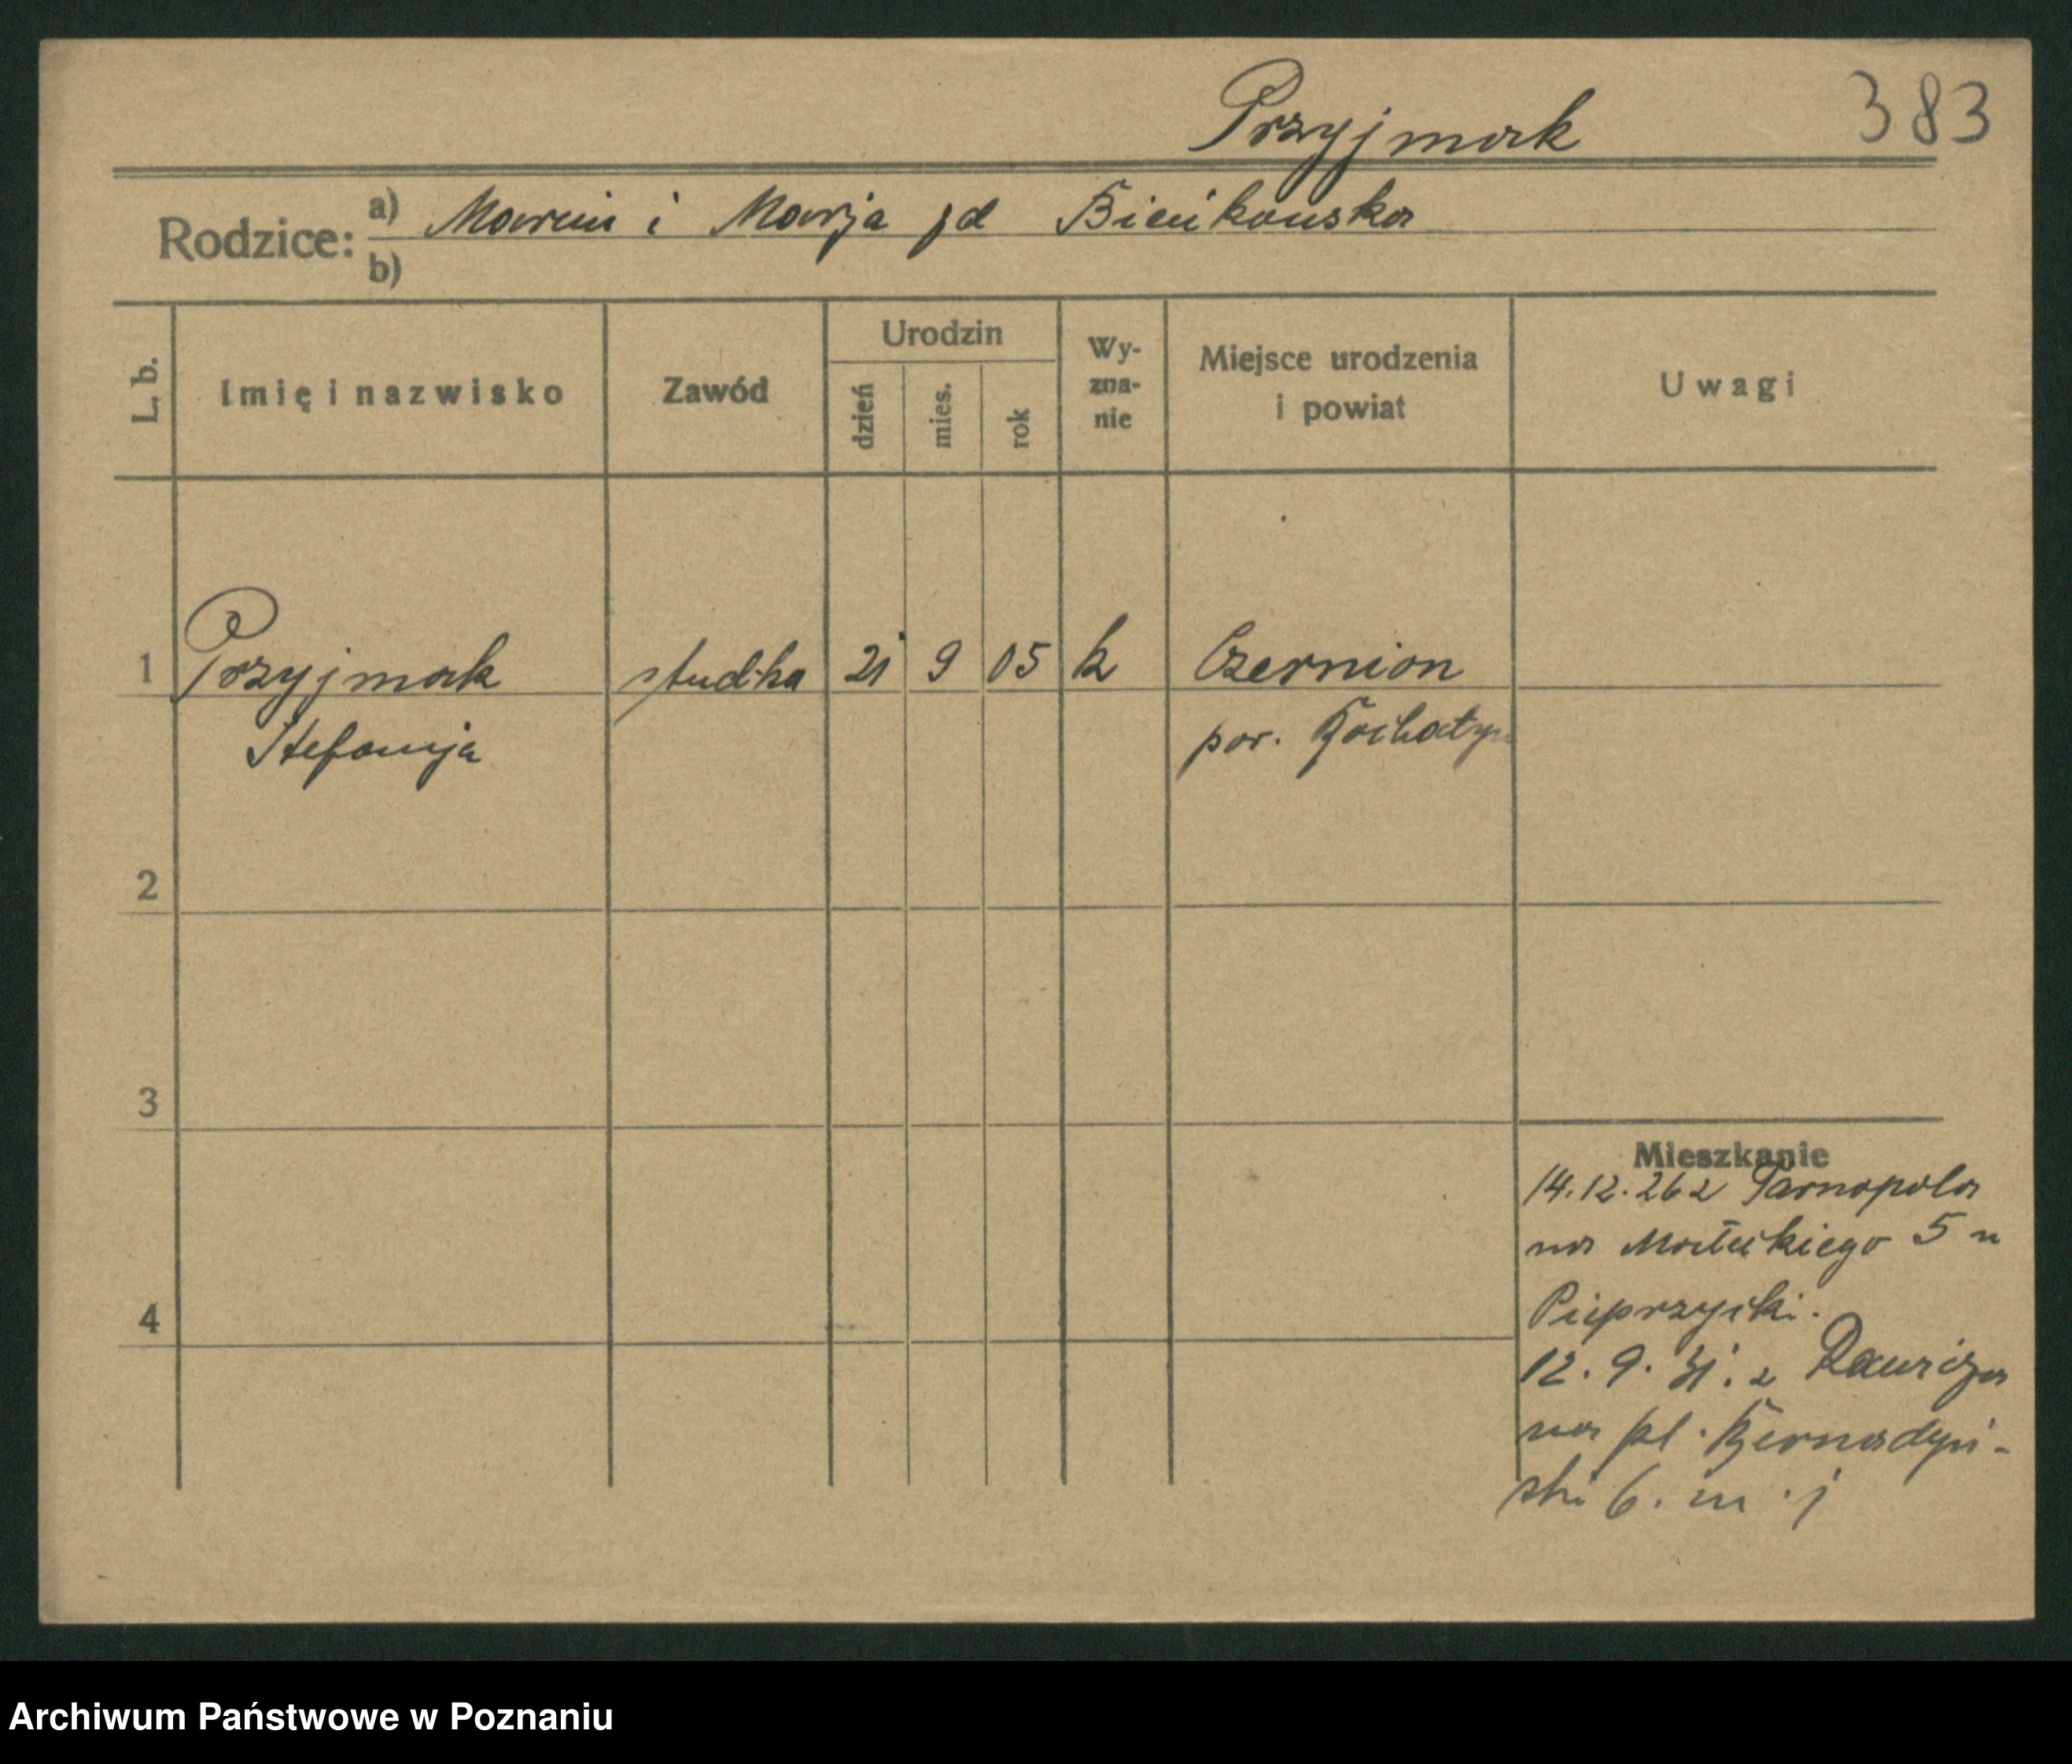 Przyjmak 383
Rodzice: a) Marcin i Marja zd Bieńkowska
b)
L. b. Imię i nazwisko Zawód Urodzin dzień mies. rok Wy-zna-nie Miejsce urodzenia i powiat Uwagi
1 Przyjmak stud-ka 21 9 05 k Czernion
Stefanja pow. Rohatyn
2
3
4
Mieszkanie
14.12.26 z Tarnopola
na Małeckiego 5 u
Pieprzycki.
12.9.31. z Rawicza
na pl. Bernadyń-
ski 6. m. j
Archiwum Państwowe w Poznaniu